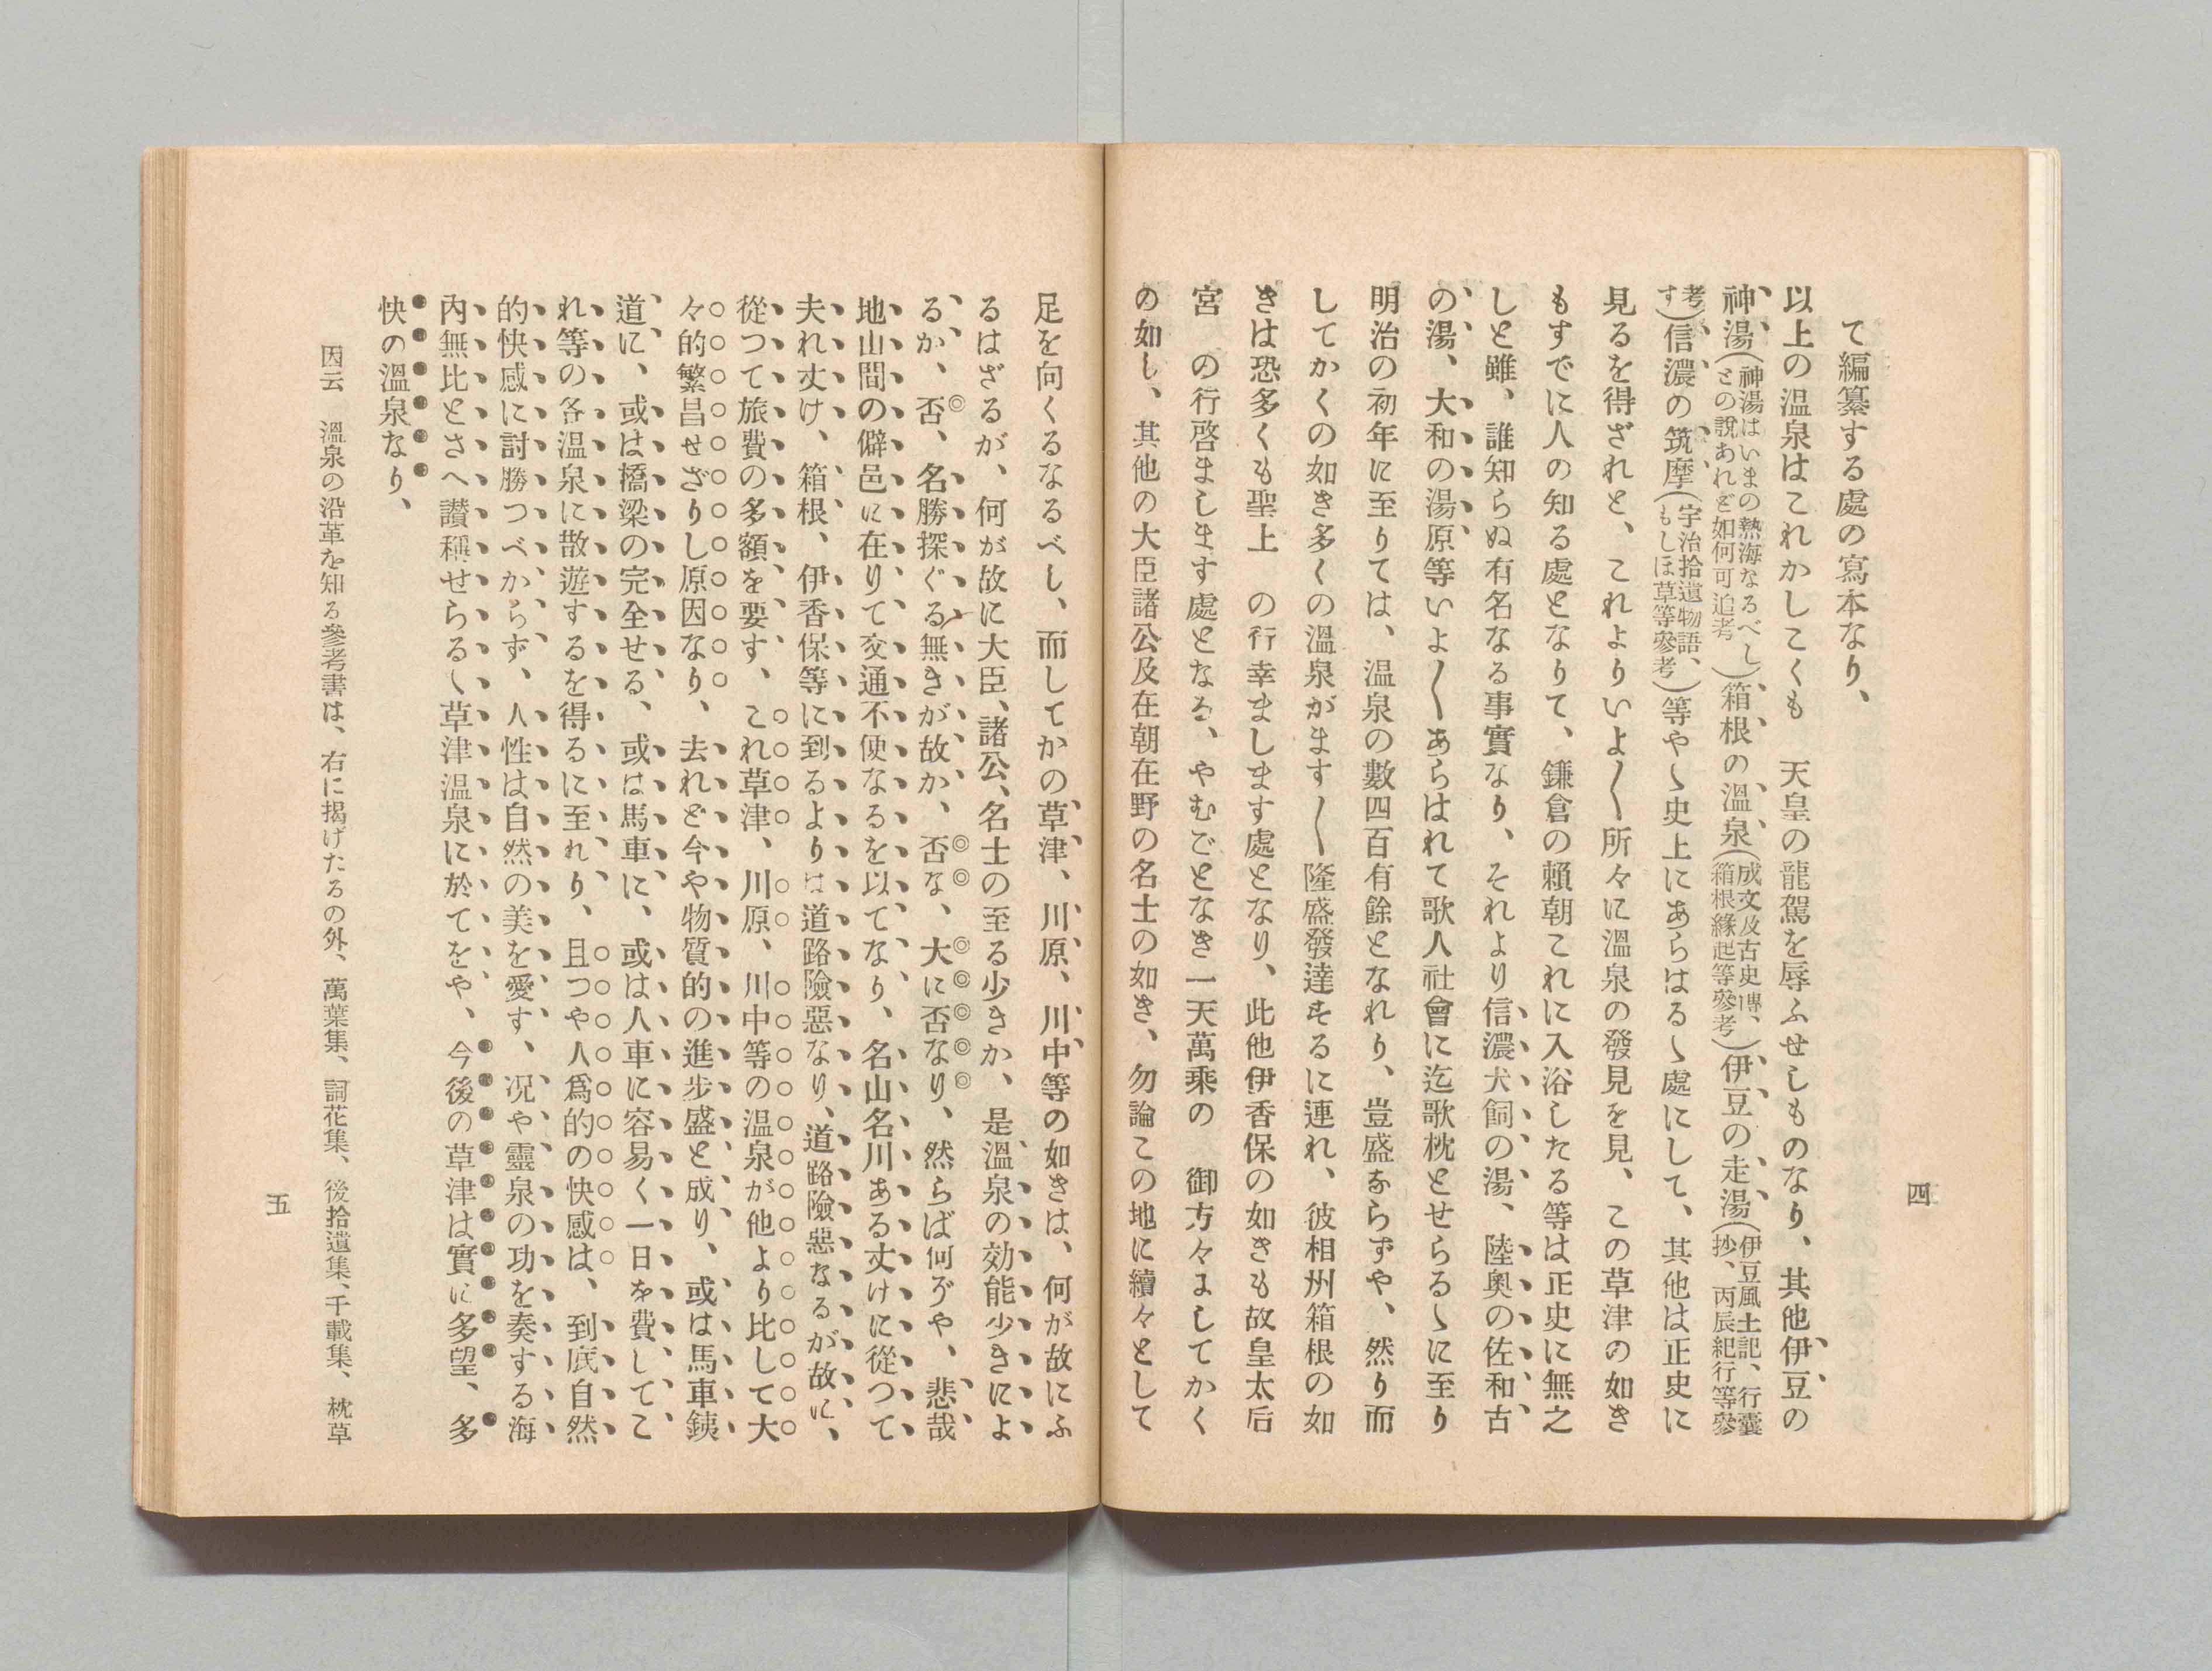 四
て編纂する處の寫本なり、
以上の温泉はこれかしこくも　天皇の龍駕を辱ふせしものなり、其他伊豆の
神湯(神湯はいまの熱海なるべし との說あれど如何可追考)箱根の温泉(成文及古史傳、箱根緣起等參考)伊豆の走湯(伊豆風土記、行囊抄、丙辰紀行等參
考す)信濃の筑摩(宇治拾遺物語、もしほ草等參考)等やゝ史上にあらはるゝ處にして、其他は正史に
見るを得ざれと、これよりいよ〱所々に溫泉の發見を見、この草津の如き
もすでに人の知る處となりて、鎌倉の賴朝これに入浴したる等は正史に無之
しと雖、誰知らぬ有名なる事實なり、それより信濃犬飼の湯、陸奧の佐和古
の湯、大和の湯原等いよ〱あらはれて歌人社會に迄歌枕とせらるゝに至り
明治の初年に至りては、溫泉の數四百有餘となれり、豈盛ならずや、然り而
してかくの如き多くの溫泉がます〱隆盛發達するに連れ、彼相州箱根の如
きは恐多くも聖上　の行幸まします處となり、此他伊香保の如きも故皇太后
宮　の行啓まします處となる、やむごとなき一天萬乘の　御方々ましてかく
の如し、其他の大臣諸公及在朝在野の名士の如き、勿論この地に續々として
足を向くるなるべし、而してかの草津、川原、川中等の如きは、何が故にふ
るはざるが、何が故に大臣、諸公、名士の至る少きか、是溫泉の効能少きによ
るか、否、名勝探ぐる無きが故か、否な、大に否なり、然らば何ぞや、悲哉
地山間の僻邑に在りて交通不便なるを以てなり、名山名川ある丈けに從つて
夫れ丈け、箱根、伊香保等に到るよりは道路險惡なり、道路險惡なるが故に、
從つて旅費の多額を要す、これ草津、川原、川中等の温泉が他より比して大
々的繁昌せざりし原因なり、去れど今や物質的の進步盛と成り、或は馬車鐵
道に、或は橋梁の完全せる、或は馬車に、或は人車に容易く一日を費してこ
れ等の各溫泉に散遊するを得るに至れり、且つや人爲的の快感は、到底自然
的快感に討勝つべからず、人性は自然の美を愛す、况や靈泉の功を奏する海
內無比とさへ讃稱せらるゝ草津溫泉に於てをや、今後の草津は實に多望、多
快の溫泉なり、
因云　溫泉の沿革を知る參考書は、右に揭げたるの外、萬葉集、詞花集、後拾遺集、千載集、枕草
五